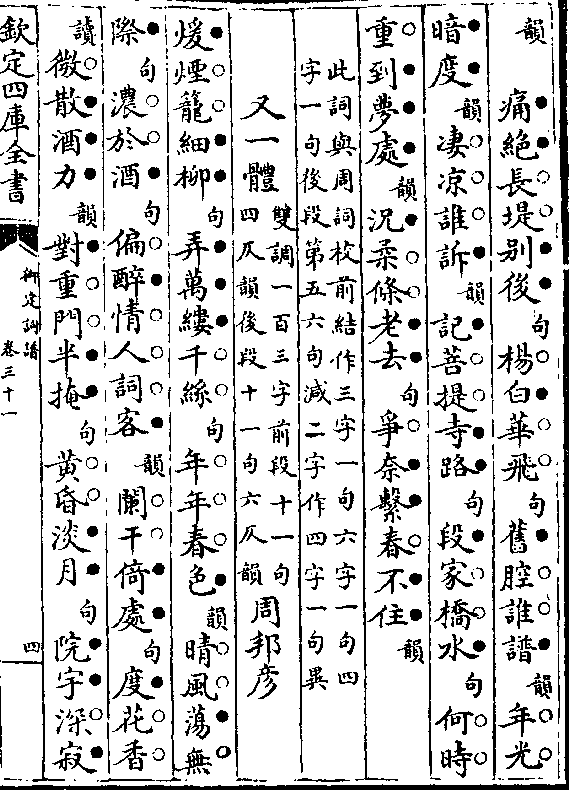 韻
痛絶長堤别後句楊白華飛句舊腔誰譜韻年光
暗度韻凄涼誰訴韻記菩提寺路句段家橋水句何時
重到夢處韻況柔條老去句爭奈繫春不住韻
此詞與周詞校前結作三字一句六字一句四
字一句後段第五六句減二字作四字一句異
又一體雙調一百三字前段十一句
四仄韻後段十一句六仄韻周邦彦
煖煙籠細柳句弄萬縷千絲句年年春色韻晴風蕩無
際句濃於酒句偏醉情人詞客韻闌干倚處句度花香
讀微散酒力韻對重門半掩句黄昏淡月句院宇深寂
欽定四庫全書
御定詞譜
卷三十一
四